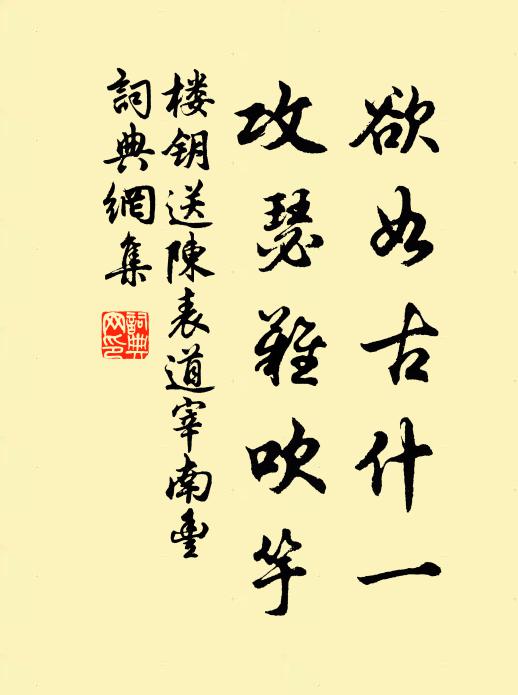 欲如古什一
攻瑟難吹竽
楼钥送陳表道宰南豐
詞典網集
詞典网印